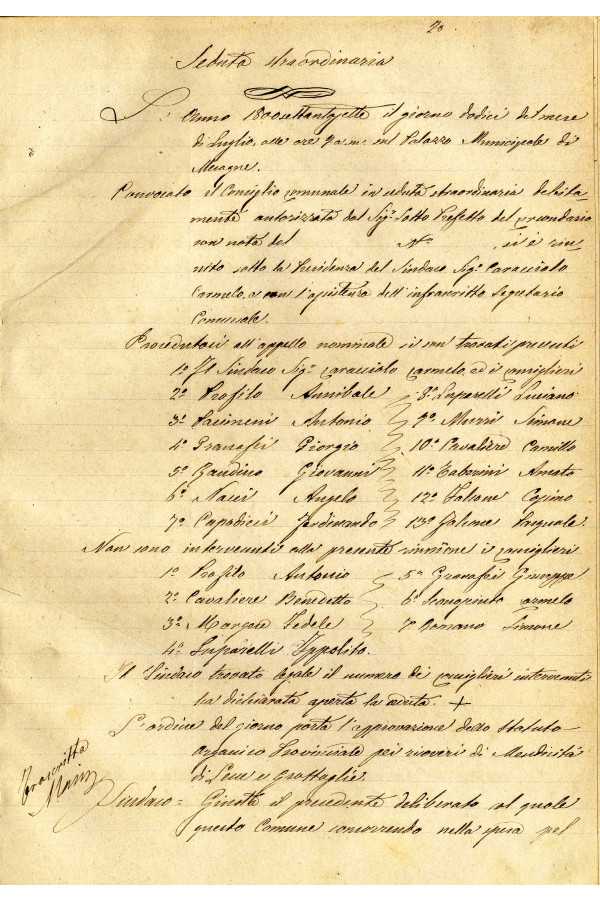 20
Seduta straordinaria
L'Anno 1800settantasette il giorno dodici del mese
di Luglio, alle ore 9 a.m. sul Palazzo Municipale di
Mesagne.
Convocato il Consiglio comunale in seduta straordinaria debita-
mente autorizzata dal Sigr Sotto Prefetto del circondario
con nota del N° si è riu
nito sotto la Presidenza del Sindaco Sigr Caracciolo
Carmelo, e con l'assistenza dell'infrascritto Segretario
Comunale.
Procedutosi all'appello nominale si son trovati presenti
1° Il Sindaco Sigr Caracciolo Carmelo ed i consiglieri
2° Profilo Annibale 8° Luparelli Luciano
3° Pacimeni Antonio 9° Murri Simone
4° Granafei Giorgio 10° Cavaliere Camillo
5° Gaudino Giovanni 11° Taberini Amato
6° Nacci Angelo 12° Falcone Cosimo
7° Capodieci Ferdinando 13° Falcone Pasquale.
Non sono intervenuti alla presente riunione i consiglieri
1° Profilo Antonio 5° Granafei Giuseppe
2° Cavaliere Benedetto 6° Carmelo
3° Morgese Fedele 7° Simone
4° Luparelli Ippolito.
Il Sindaco trovato legale il numero dei consiglieri intervenuti
ha dichiarata aperta la seduta. +
L'ordine del giorno porta l'approvazione dello Statuto
organico Provinciale pei ricoveri di Mendicità
di Lecce e Grottaglie.
Trascritta
Sindaco = Giusta il precedente deliberato col quale
questo Comune concorrendo nella spesa pel